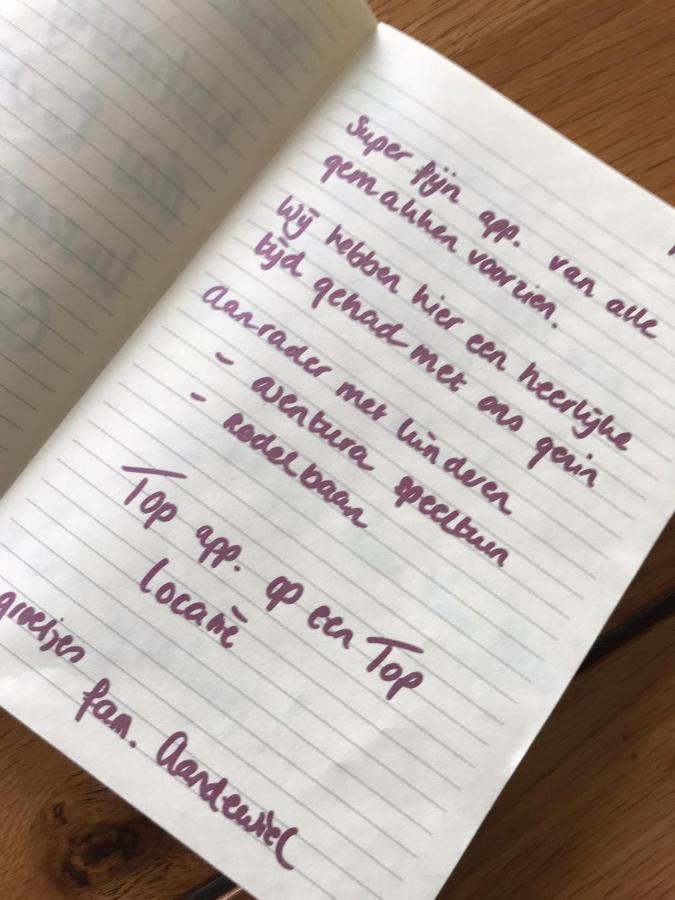 Super fijn app. van alle
gemakken voorzien.
Wij hebben hier een heerlijke
tijd gehad met ons gezin
Aanrader met kinderen
- aventura speeltuin
- Rodelbaan
Top app. op een Top
locatie
groetjes
fam. Aandewiel